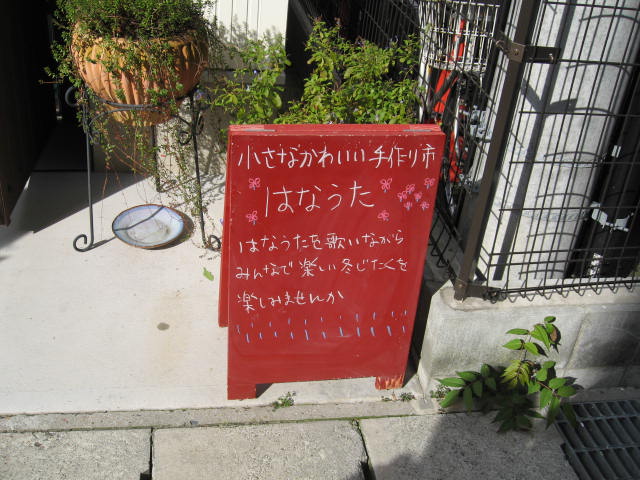 小さなかわいい手作り市
はなうた
はなうたを歌いながら
みんなで楽しい冬じたくを
楽しみませんか